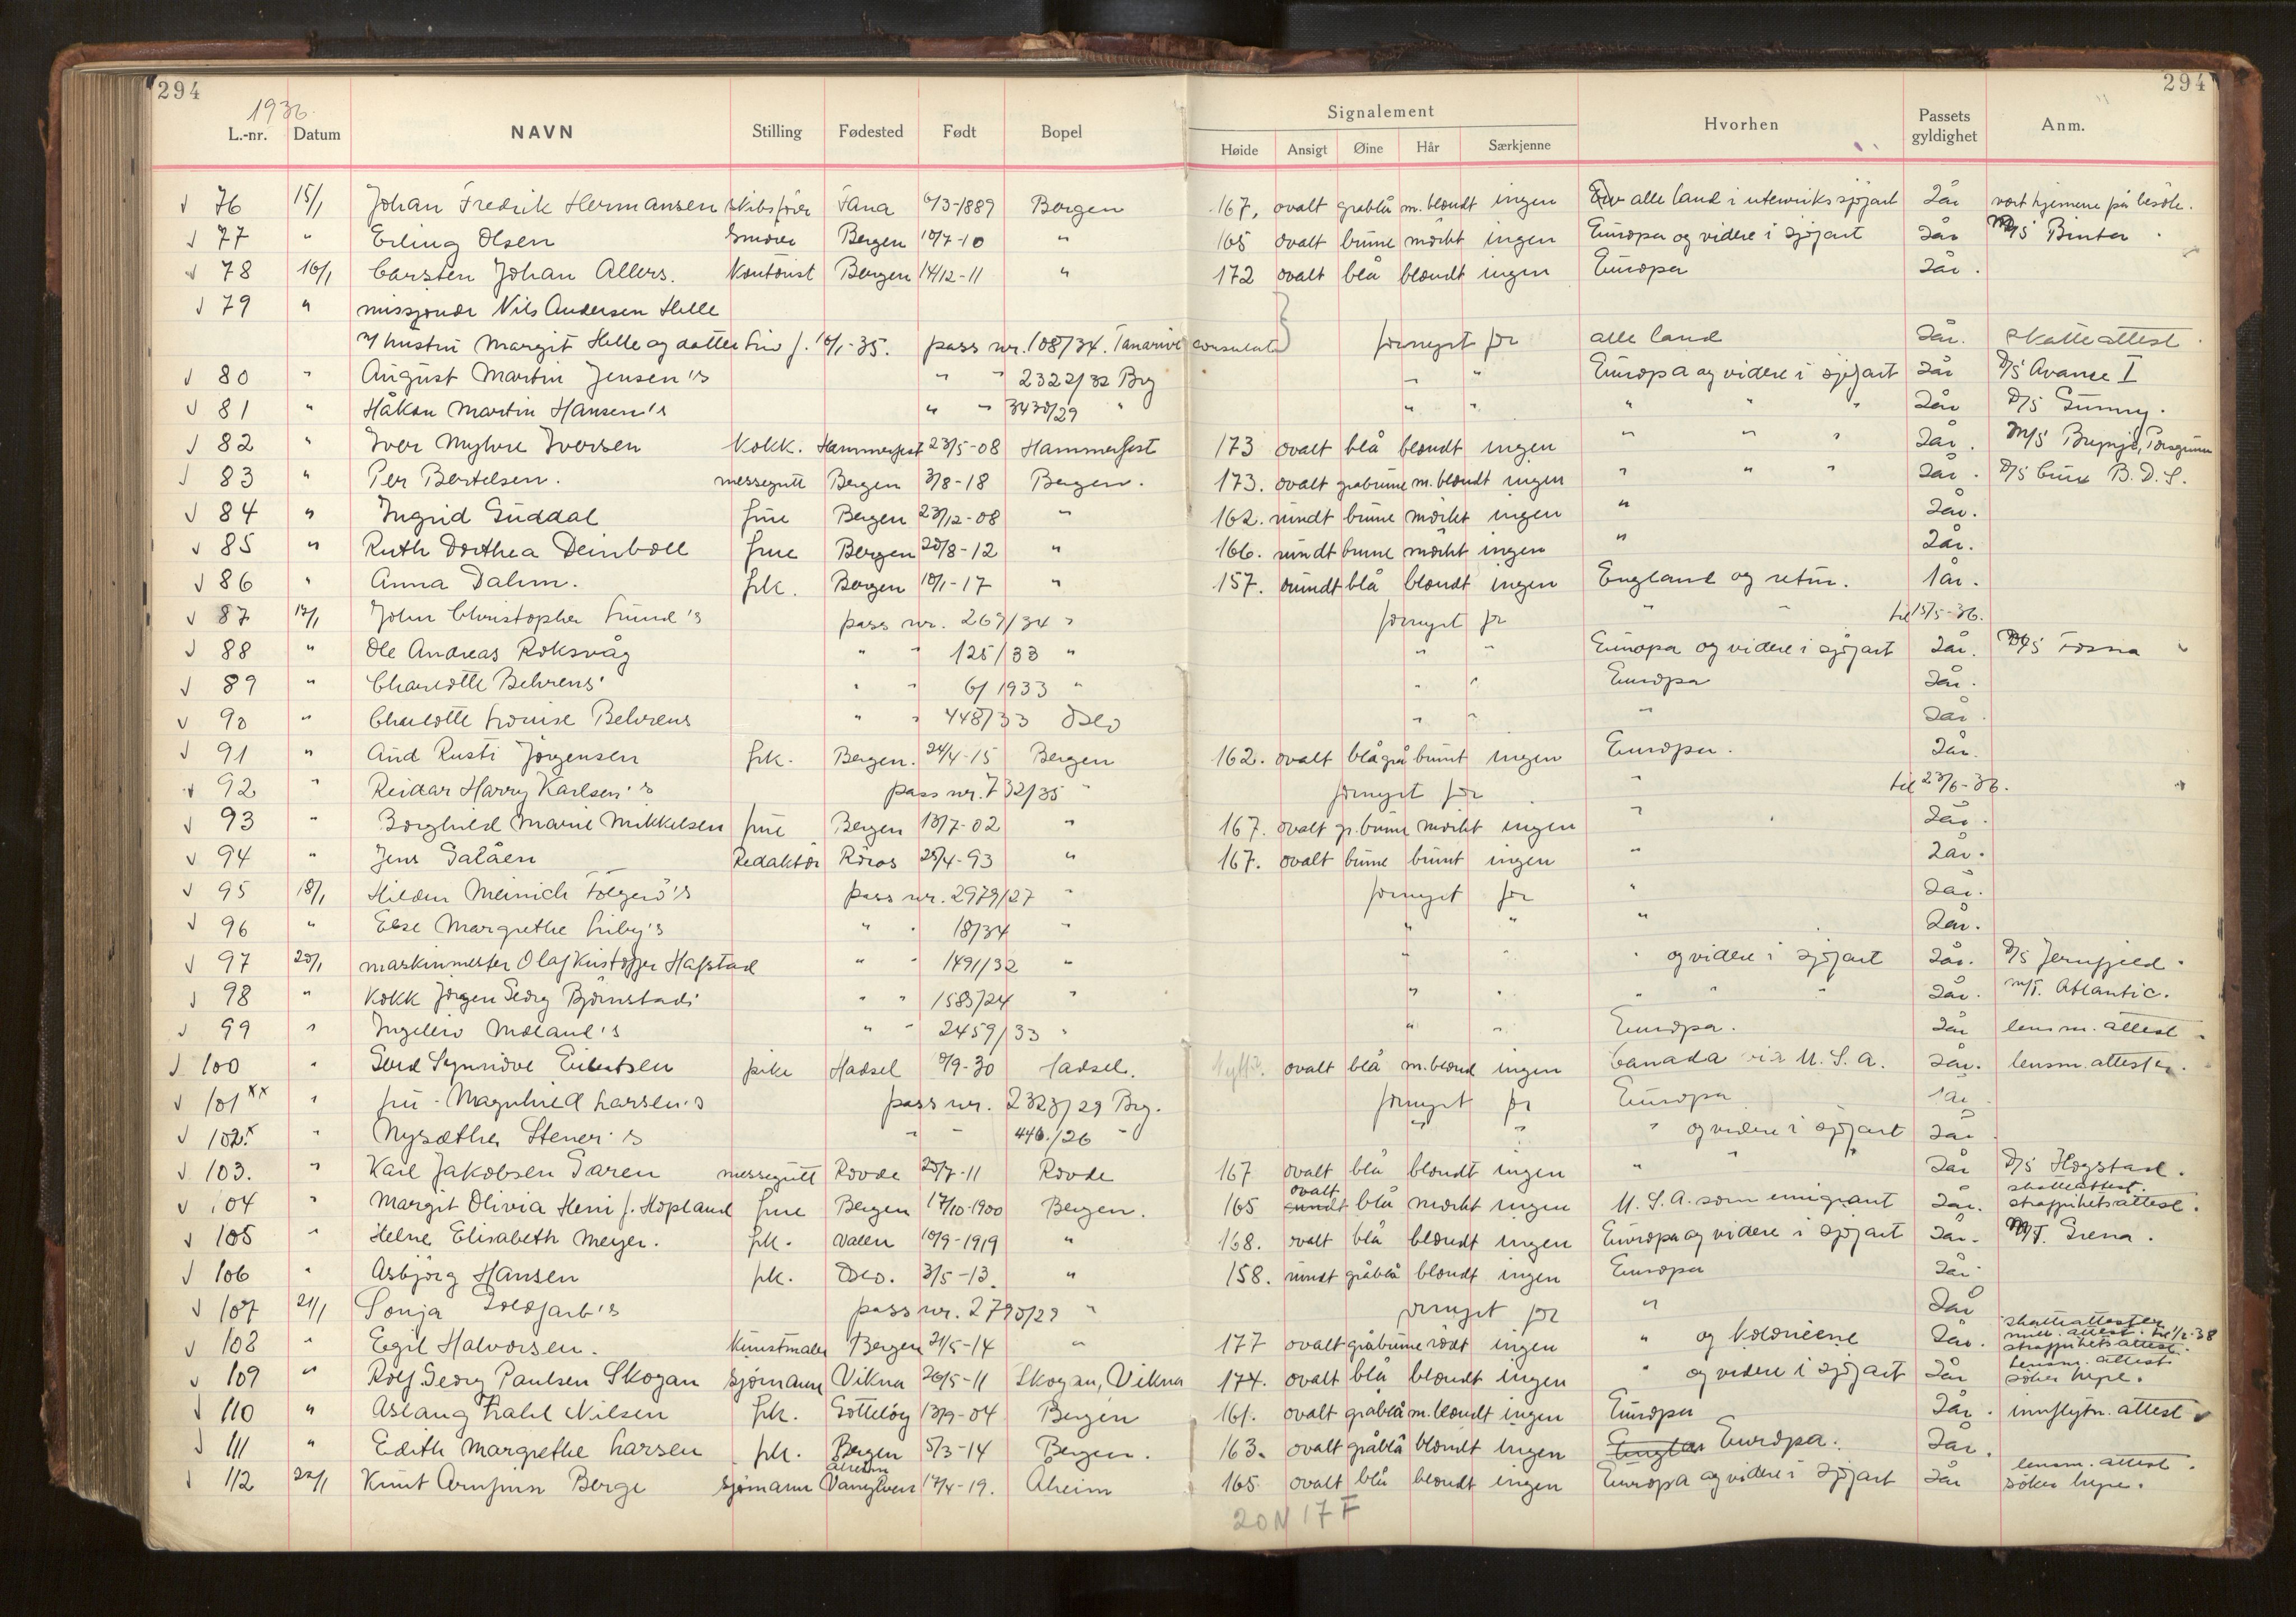 294 294
1936.
Signalement
L.-nr. Datum NAVN Stilling Fødested Født Bopel Høide Ansigt Øine Hår Særkjenne Hvorhen Passets gyldighet Anm.
√ 76 15/1 Johan Fredrik Hermansen skibsfører Fana 6/3-1889 Bergen 167. ovalt gråblå m. blondt ingen alle land i utenriks sjøfart 2år
√ 77 " Erling Olsen Bergen 10/7-10 " 165 ovalt brune mörkt ingen Europa og videre i sjøfart 2år M/S Binta
√ 78 16/1 Carsten Johan Allers. Kontorist Bergen 14/12-11 " 172 ovalt blå blondt ingen Europa 2år.
√ 79 " missjonær Nils Andersen Helle
m/ hustru Margit Helle og datter Liv f. 10/1-35. pass nr. 108/34. Tanarive consulat fornyet for alle land 2år. skatteattest
√ 80 " August Martin Jensen's " " 2322/32 Brg " " Europa og videre i sjøfart 2år D/S Avance I
√ 81 " Håkon Martin Hansen's " " 3430/29 " " " " " " 2år D/S Gunny.
√ 82 " Iver Myhre Iversen Kokk. Hammerfest 23/5-08 Hammerfest 173 ovalt blå blondt ingen " " " 2år. M/S Brynje, Porsgrunn
√ 83 " Per Bertelsen. messegutt Bergen 3/8-18 Bergen. 173. ovalt gråbrune m. blondt ingen " " " 2år. D/S B.D.S.
√ 84 " Ingrid Guddal frue Bergen 23/12-08 " 162. rundt brune mörkt ingen " 2år.
√ 85 " Ruth Dorthea Deinboll frue Bergen 20/8-12 " 166. rundt brune mörkt ingen " 2år.
√ 86 " Anna Dahm. frk. Bergen 10/1-17 " 157. rundt blå blondt ingen England og retur. 1år.
√ 87 17/1 John Christopher Lund's pass nr. 269/34 " fornyet for " " til 15/5-36.
√ 88 " Ole Andreas Roksvåg " " 125/33 " " " Europa og videre i sjøfart 2år. D/S Fosna
√ 89 " Charlotte Behrens' " " 6/1933 " " " Europa 2år.
√ 90 " Charlotte Louise Behrens " " 448/33 Oslo " " " 2år
√ 91 " Aud Rusti Jörgensen frk. Bergen. 24/4-15 Bergen 162. ovalt blågrå brunt ingen Europa. 2år.
√ 92 " Reidar Harry Karlsen's pass nr. 732/35 " fornyet for " til 23/6-36.
√ 93 " Borghild Marie Mikkelsen frue Bergen 13/7-02 " 167. ovalt gr.brune mörkt ingen " 2år.
√ 94 " Jens Galåen Redaktör Röros 25/4-93 " 167. ovalt brune brunt ingen " 2år.
√ 95 18/1 Hildur Meinich Folgerö's pass nr. 2979/27 " fornyet for " 2år.
√ 96 " Else Margrethe Friby's " " 18/34 " " " " 2år.
√ 97 20/1 maskinmester Olaf Kristoffer Hafstad " " 1491/32 " " " " og videre i sjøfart 2år. D/S Jernfjeld.
√ 98 " Kokk Jörgen Georg Björnstad's " " 1583/24 " " " " " " 2år. M/T. Atlantic.
√ 99 " Ingeleiv Moland's " " 2459/33 " " " Europa. 2år lensm. attest
√ 100 " Gerd Synnöve Eilertsen pike Hadsel 9/9-30 Hadsel. ovalt blå m.blond ingen Canada via U.S.A. 2år. lensm.attester.
√ 101 xx " fru Magnhild Larsen's pass nr. 2323/29 Brg. fornyet for Europa 1år
√ 102.x " Nysæther Stener's " " 446./26 " " " " og videre i sjøfart 2år
√ 103. " Karl Jakobsen Garen messegutt Rovde 20/7-11 Rovde 167 ovalt blå blondt ingen " " " 2år D/S Hogstad.
√ 104 " Margit Olivia Heni f. Hopland frue Bergen 17/10-1900 Bergen. 165 ovalt rundt blå mörkt ingen U.S.A. som emigrant 2år. skatteattest. straffrihetsattest.
√ 105 " Helene Elisabeth Meyer. frk. Valen 10/9-1919 " 168. ovalt blå blondt ingen Europa og videre i sjøfart 2år. M/T. Grena.
√ 106 " Asbjörg Hansen frk. Oslo. 3/5-13. " 158. rundt gråblå blondt ingen Europa 2år
√ 107 21/1 Sonja Goldfarb's pass nr. 2790/29 " fornyet for " 2år
√ 108 " Egil Halvorsen. Kunstmaler Bergen 21/5-14 " 177 ovalt gråbrune rödt ingen " og Koloniene 2år. skatteattester mil. attest. til 1/2-38 straffrihetsattest.
√ 109 " Rolf Georg Paulsen Skogan sjømann Vikna 26/5-11 Skogan, Vikna 174. ovalt blå blondt ingen " og videre i sjøfart 2år Lensm. attest. söker hyre.
√ 110 " Aslaug Nilsen frk. 13/9-04 Bergen 161. ovalt gråblå m.blondt ingen Europa 2år. innflytn. attest
√ 111 " Edith Margrethe Larsen frk. Bergen 5/3-14 Bergen. 163. ovalt gråblå blondt ingen Europa. 2år.
√ 112 22/1 Knut Arnfinn Berge sjömann Åheim Vanylven 17/4-19. Åheim 165 ovalt blå blondt ingen Europa og videre i sjøfart 2år lensm. attest. söker hyre.
20 N 17 F